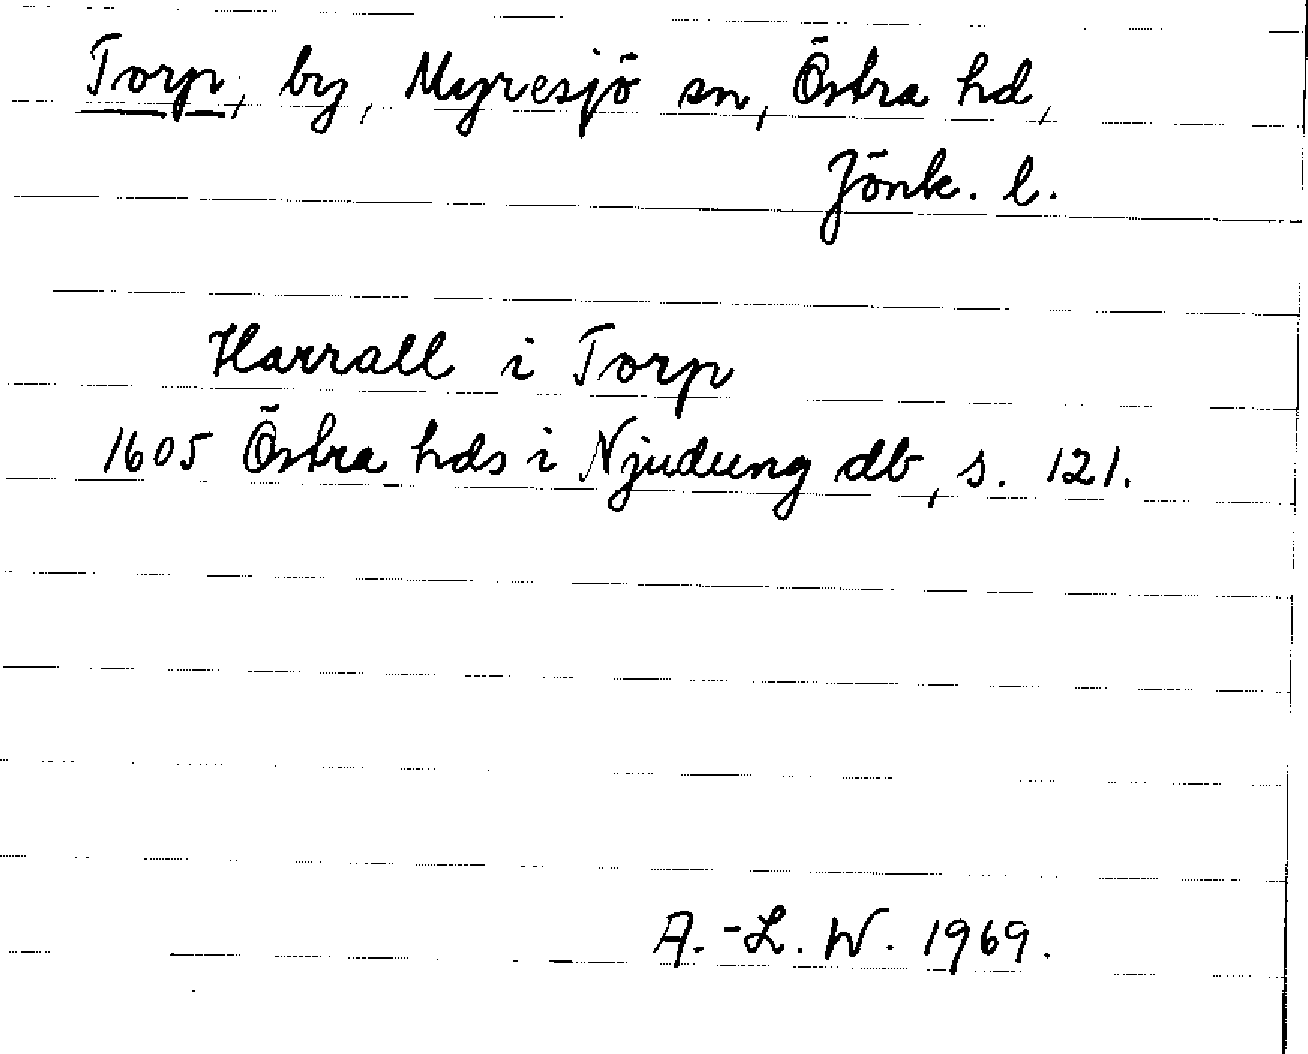 Torp, by, Myresjö sn, Östra hd,
Jönk. l.
Harrall i Torp
1605 Östra hds i Njudung db, s. 121.
A.-L. W. 1969.